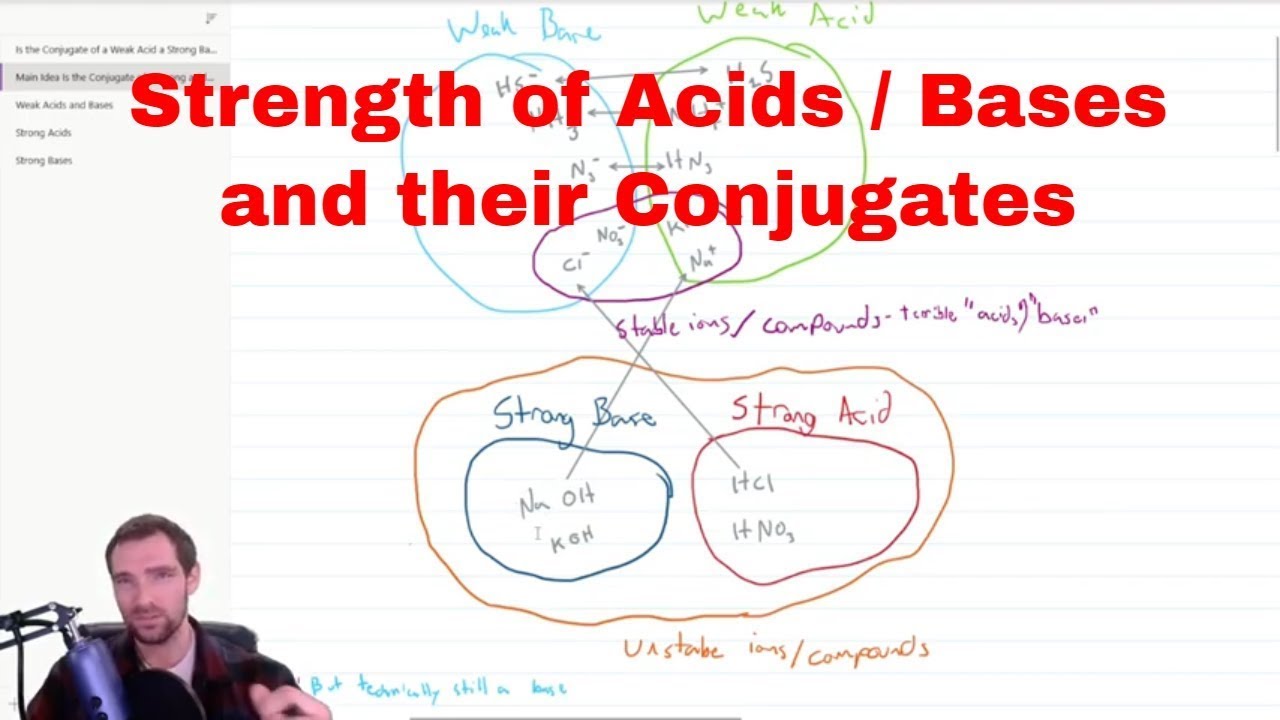 Weak Base
Weak Acid
Is the Conjugate of a Weak Acid a Strong Ba...
Main Idea Is the Conjugate
Weak Acids and Bases
Strong Acids
Strong Bases
Strength of Acids / Bases
and their Conjugates
HS⁻
H₂S
N₃⁻
HN₃
NO₃⁻
Cl⁻
Na⁺
stable ions/compounds - terrible "acids"/"bases"
Strong Base
Strong Acid
NaOH
HCl
KOH
HNO₃
Unstabe ions/compounds
But technically still a base